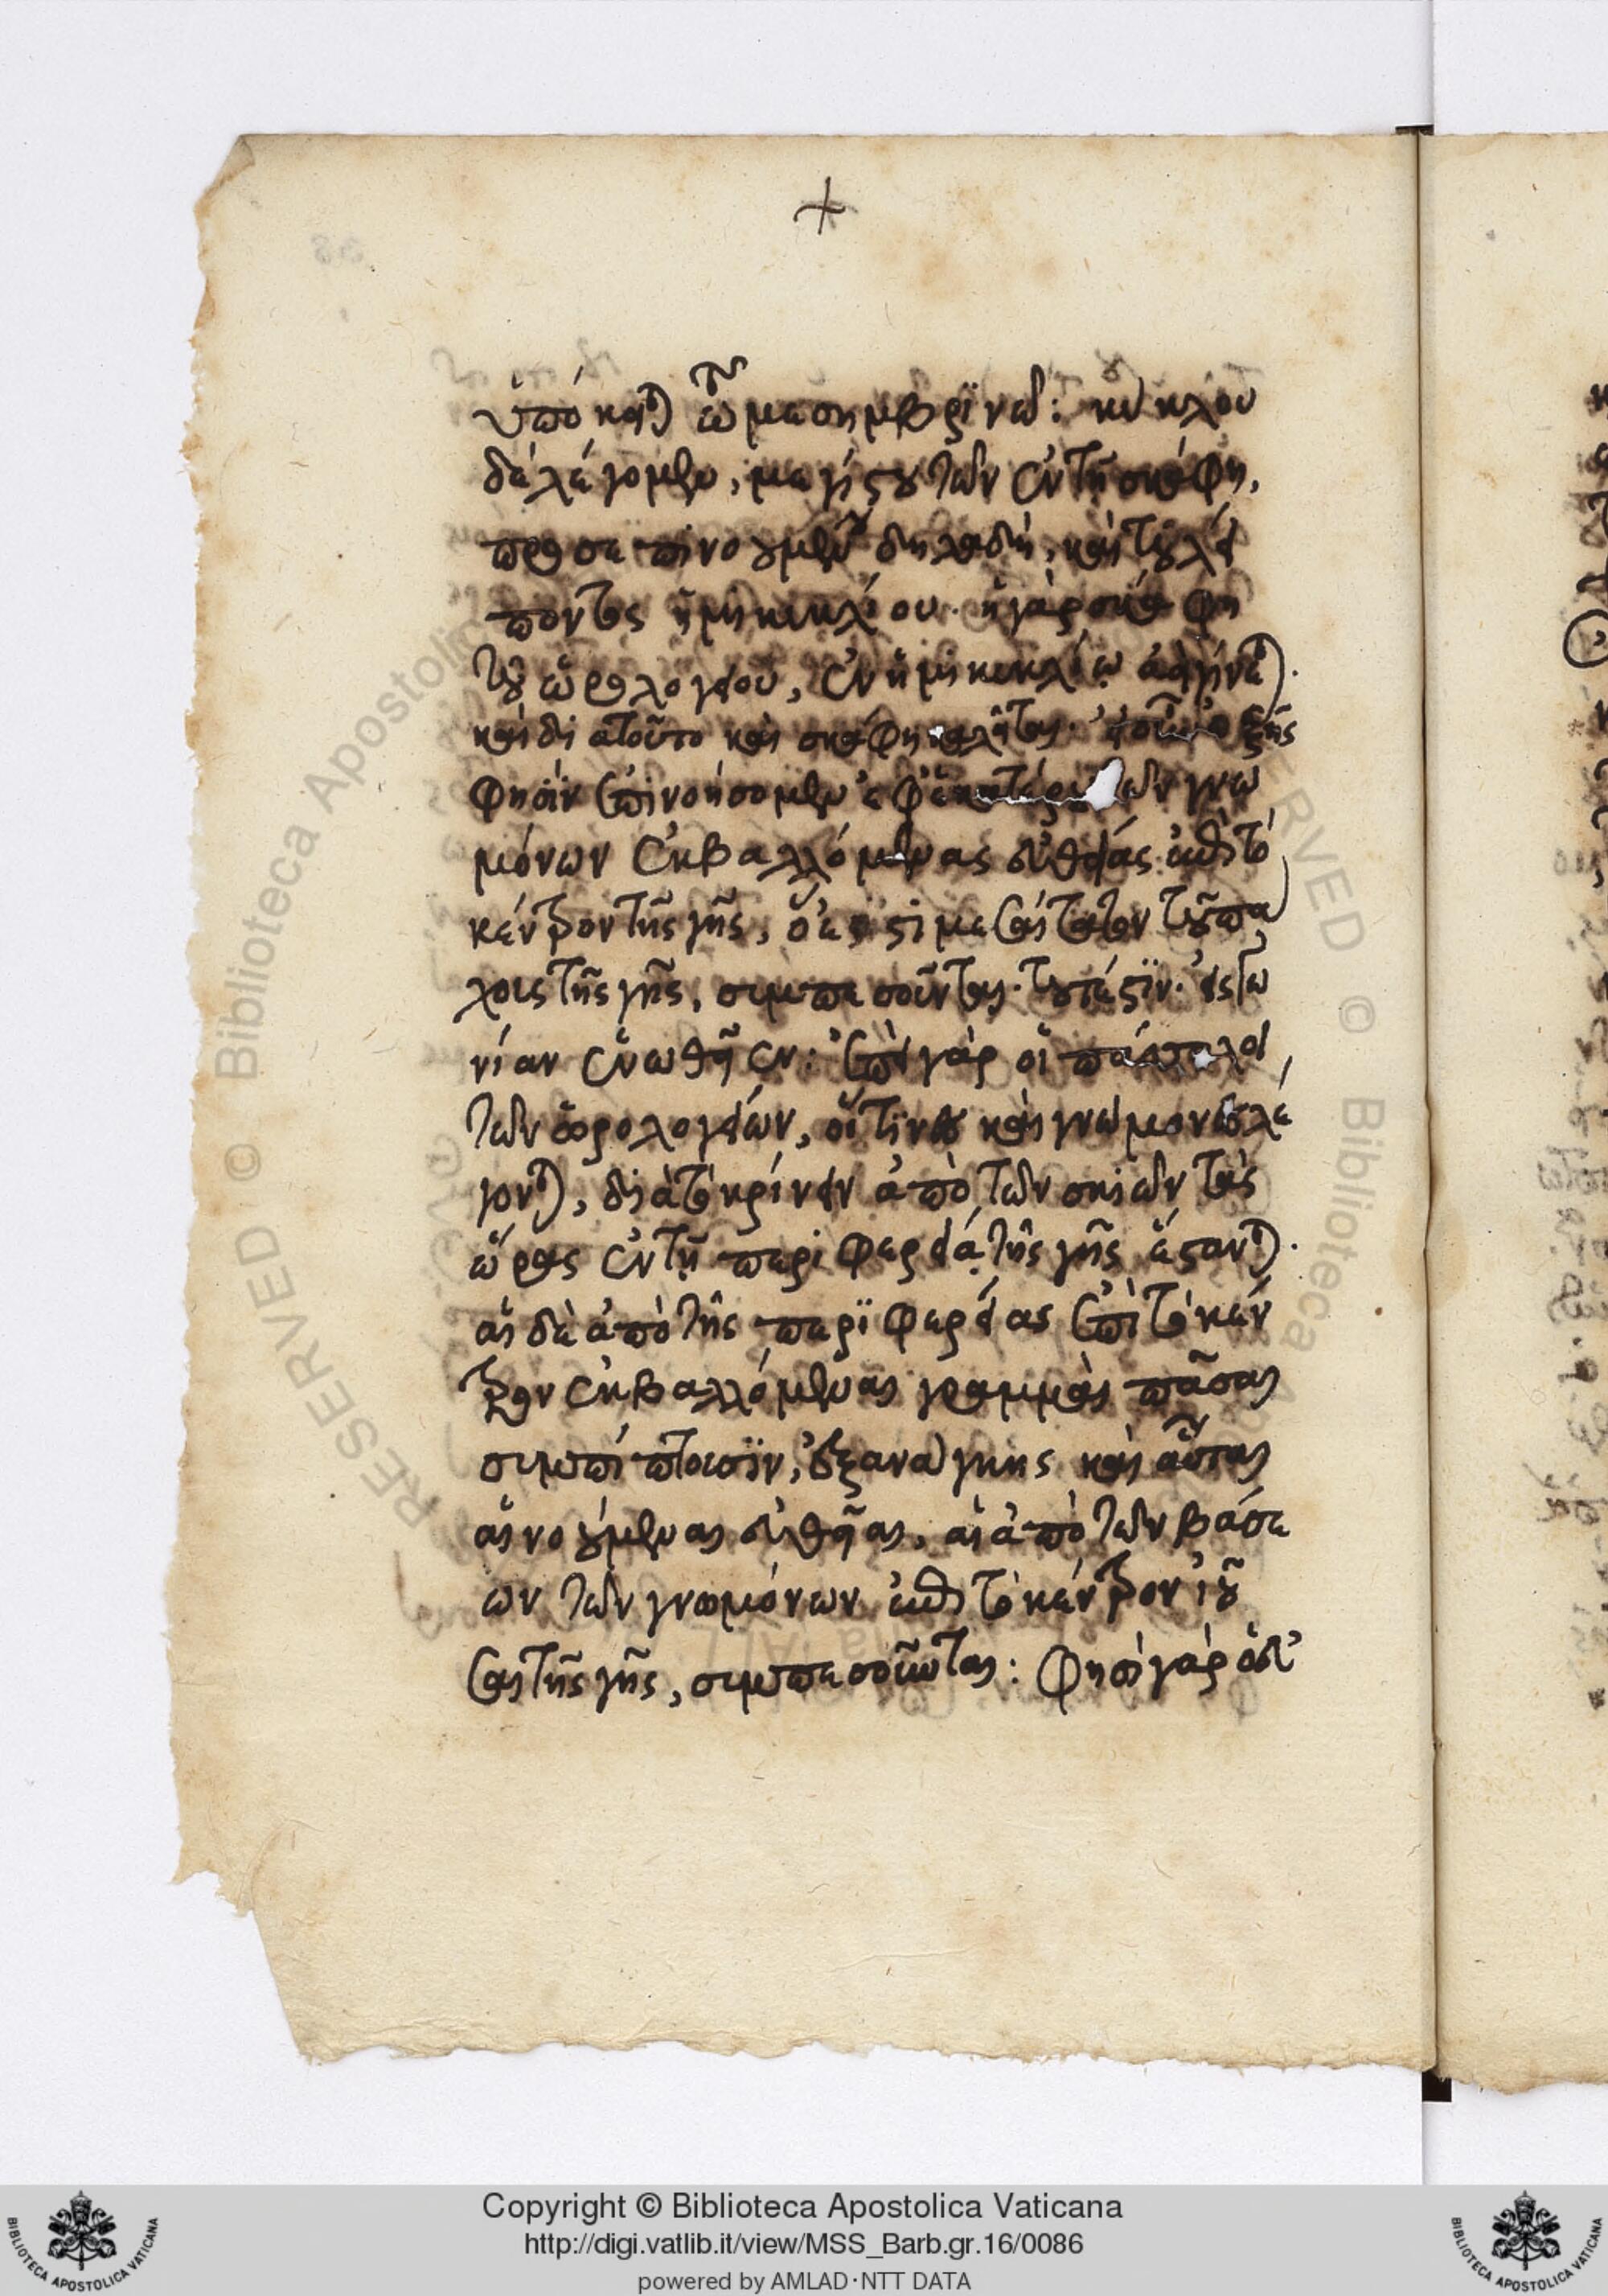 +
ὑπόκειται τῶ μεσημβρινῶ: κύκλου
δὲ λέγομεν, μεγίστου τῶν ἐν τῇ σκάφη,
προσεπινοουμένου δηλαδὴ, καὶ τοῦ λεί
ποντος ἡμικυκλίου. ἡ γὰρ σκάφη
τοῦ ὡρολογείου, ἐν ἡμικυκλίω
καὶ διατοῦτο καὶ σκάφη καλεῖται. ἑξῆς
φησὶν ἐπινοήσομεν ἐφ' ἑκατέρου τῶν γνω
μόνων ἐκβαλλόμενας εὐθείας ἐπὶ τὸ
κέντρον τῆς γῆς, ὅ ἐστι μεσαίτατον τοῦ
τῆς γῆς, συμπεσοῦνται. τουτέστιν. εἰς γω
νίαν ἑνωθῆεν: ἐπεὶ γὰρ οἱ πάσσαλοι,
τῶν ὡρολογείων, οἵτινες καὶ γνώμονες λέ
γονται, διὰ τὸ κρίνειν ἀπὸ τῶν σκιῶν τὰς
ὥρας ἐν τῇ περιφερείᾳ τῆς γῆς ἵστανται.
αἱ δὲ ἀπὸ τῆς περιφερείας ἐπὶ τὸ κέν
τρον ἐκβαλλόμεναι γραμμαὶ πᾶσαι
συμπίπτουσιν, ἐξανάγκης καὶ αὗται
αἱ νοούμεναι εὐθεῖαι, αἱ ἀπὸ τῶν βάσε
ων τῶν γνωμόνων ἐπὶ τὸ κέντρον
τῆς γῆς, συμπεσοῦνται: φησὶ γὰρ ὁ
Copyright © Biblioteca Apostolica Vaticana
http://digi.vatlib.it/view/MSS_Barb.gr.16/0086
powered by AMLAD·NTT DATA